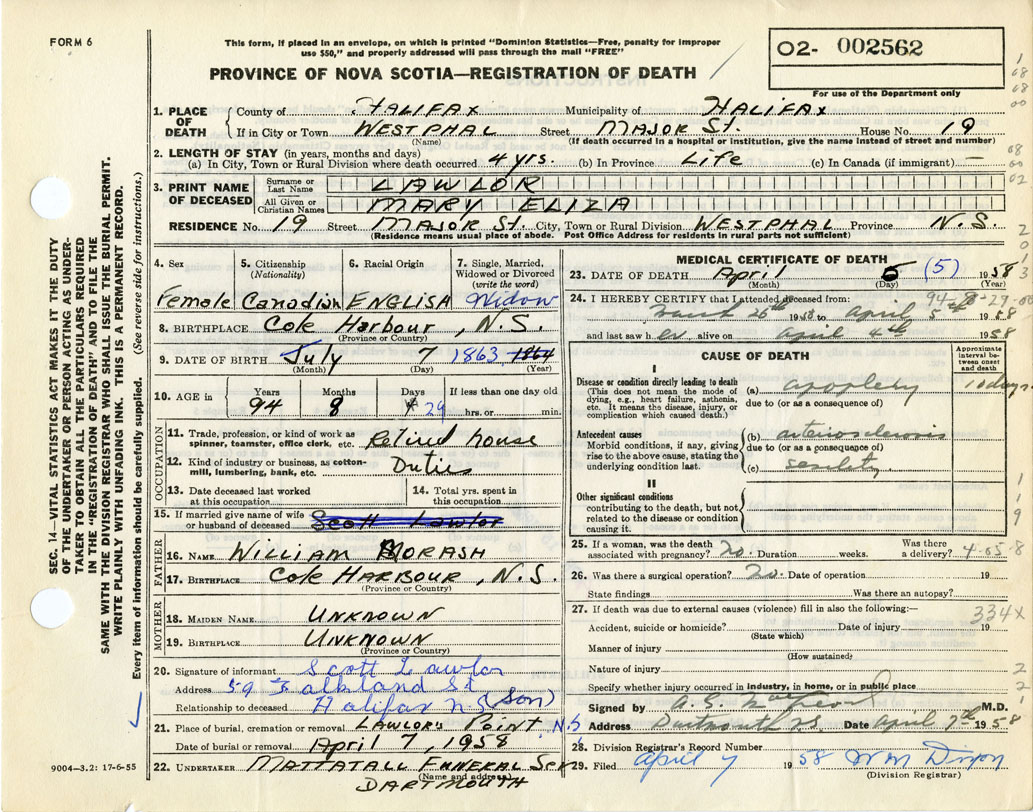 FORM 6
This form, if placed in an envelope, on which is printed "Dominion Statistics—Free, penalty for improper
use $50," and properly addressed will pass through the mail "FREE"
PROVINCE OF NOVA SCOTIA—REGISTRATION OF DEATH
02- 002562
For use of the Department only
1. PLACE OF DEATH
County of HALIFAX Municipality of HALIFAX
If in City or Town WESTPHAL Street MAJOR ST. House No. 19
(Name) (If death occurred in a hospital or institution, give the name instead of street and number)
2. LENGTH OF STAY (in years, months and days)
(a) In City, Town or Rural Division where death occurred 4 yrs. (b) In Province Life (c) In Canada (if immigrant) —
3. PRINT NAME OF DECEASED
Surname or Last Name LAWLOR
All Given or Christian Names MARY ELIZA
RESIDENCE No. 19 Street MAJOR ST. City, Town or Rural Division WESTPHAL Province N.S.
(Residence means usual place of abode. Post Office Address for residents in rural parts not sufficient)
4. Sex Female
5. Citizenship (Nationality) Canadian
6. Racial Origin ENGLISH
7. Single, Married, Widowed or Divorced (write the word) Widow
8. BIRTHPLACE Cole Harbour, N.S.
(Province or Country)
9. DATE OF BIRTH July 7 1863 1864
(Month) (Day) (Year)
10. AGE in Years 94 Months 8 Days 29 If less than one day old hrs. or min.
OCCUPATION
11. Trade, profession, or kind of work as spinner, teamster, office clerk, etc. Retired house
12. Kind of industry or business, as cotton-mill, lumbering, bank, etc. Duties
13. Date deceased last worked at this occupation
14. Total yrs. spent in this occupation
15. If married give name of wife or husband of deceased Scott Lawlor
FATHER
16. NAME WILLIAM MORASH
17. BIRTHPLACE COLE HARBOUR, N.S.
(Province or Country)
MOTHER
18. MAIDEN NAME UNKNOWN
19. BIRTHPLACE UNKNOWN
(Province or Country)
20. Signature of informant Scott Lawlor
Address 59 Falkland St
Relationship to deceased Halifax N S (Son)
21. Place of burial, cremation or removal LAWLOR'S POINT N.S
Date of burial or removal April 7, 1958
22. UNDERTAKER MATTATALL FUNERAL Ser
(Name and address)
DARTMOUTH
MEDICAL CERTIFICATE OF DEATH
23. DATE OF DEATH April 5 (5) 1958
(Month) (Day) (Year)
94-8-29-
24. I HEREBY CERTIFY that I attended deceased from:
March 26th 1958 to April 5th 1958
and last saw her alive on April 4th 1958
CAUSE OF DEATH
Approximate interval between onset and death
I
Disease or condition directly leading to death
(This does not mean the mode of dying, e.g., heart failure, asthenia, etc. It means the disease, injury, or complication which caused death.)
(a) apoplexy 10 days
due to (or as a consequence of)
Antecedent causes
Morbid conditions, if any, giving rise to the above cause, stating the underlying condition last.
(b) arteriosclerosis
due to (or as a consequence of)
(c) senility
II
Other significant conditions
contributing to the death, but not related to the disease or condition causing it.
25. If a woman, was the death associated with pregnancy? No. Duration weeks. Was there a delivery?
4-05-8
26. Was there a surgical operation? No. Date of operation 19
State findings Was there an autopsy?
27. If death was due to external causes (violence) fill in also the following:—
334X
Accident, suicide or homicide? Date of injury 19
(State which)
Manner of injury
(How sustained)
Nature of injury
Specify whether injury occurred in industry, in home, or in public place
Signed by A. G. MacLeod M.D.
Address Dartmouth N.S. Date April 7th 1958
28. Division Registrar's Record Number
29. Filed April 7 1958 W M Dixon
(Division Registrar)
SEC. 14—VITAL STATISTICS ACT MAKES IT THE DUTY
OF THE UNDERTAKER OR PERSON ACTING AS UNDER-
TAKER TO OBTAIN ALL THE PARTICULARS REQUIRED
IN THE "REGISTRATION OF DEATH" AND TO FILE THE
SAME WITH THE DIVISION REGISTRAR WHO SHALL ISSUE THE BURIAL PERMIT.
WRITE PLAINLY WITH UNFADING INK. THIS IS A PERMANENT RECORD.
Every item of information should be carefully supplied. (See reverse side for instructions.)
9004—3.2: 17-6-55